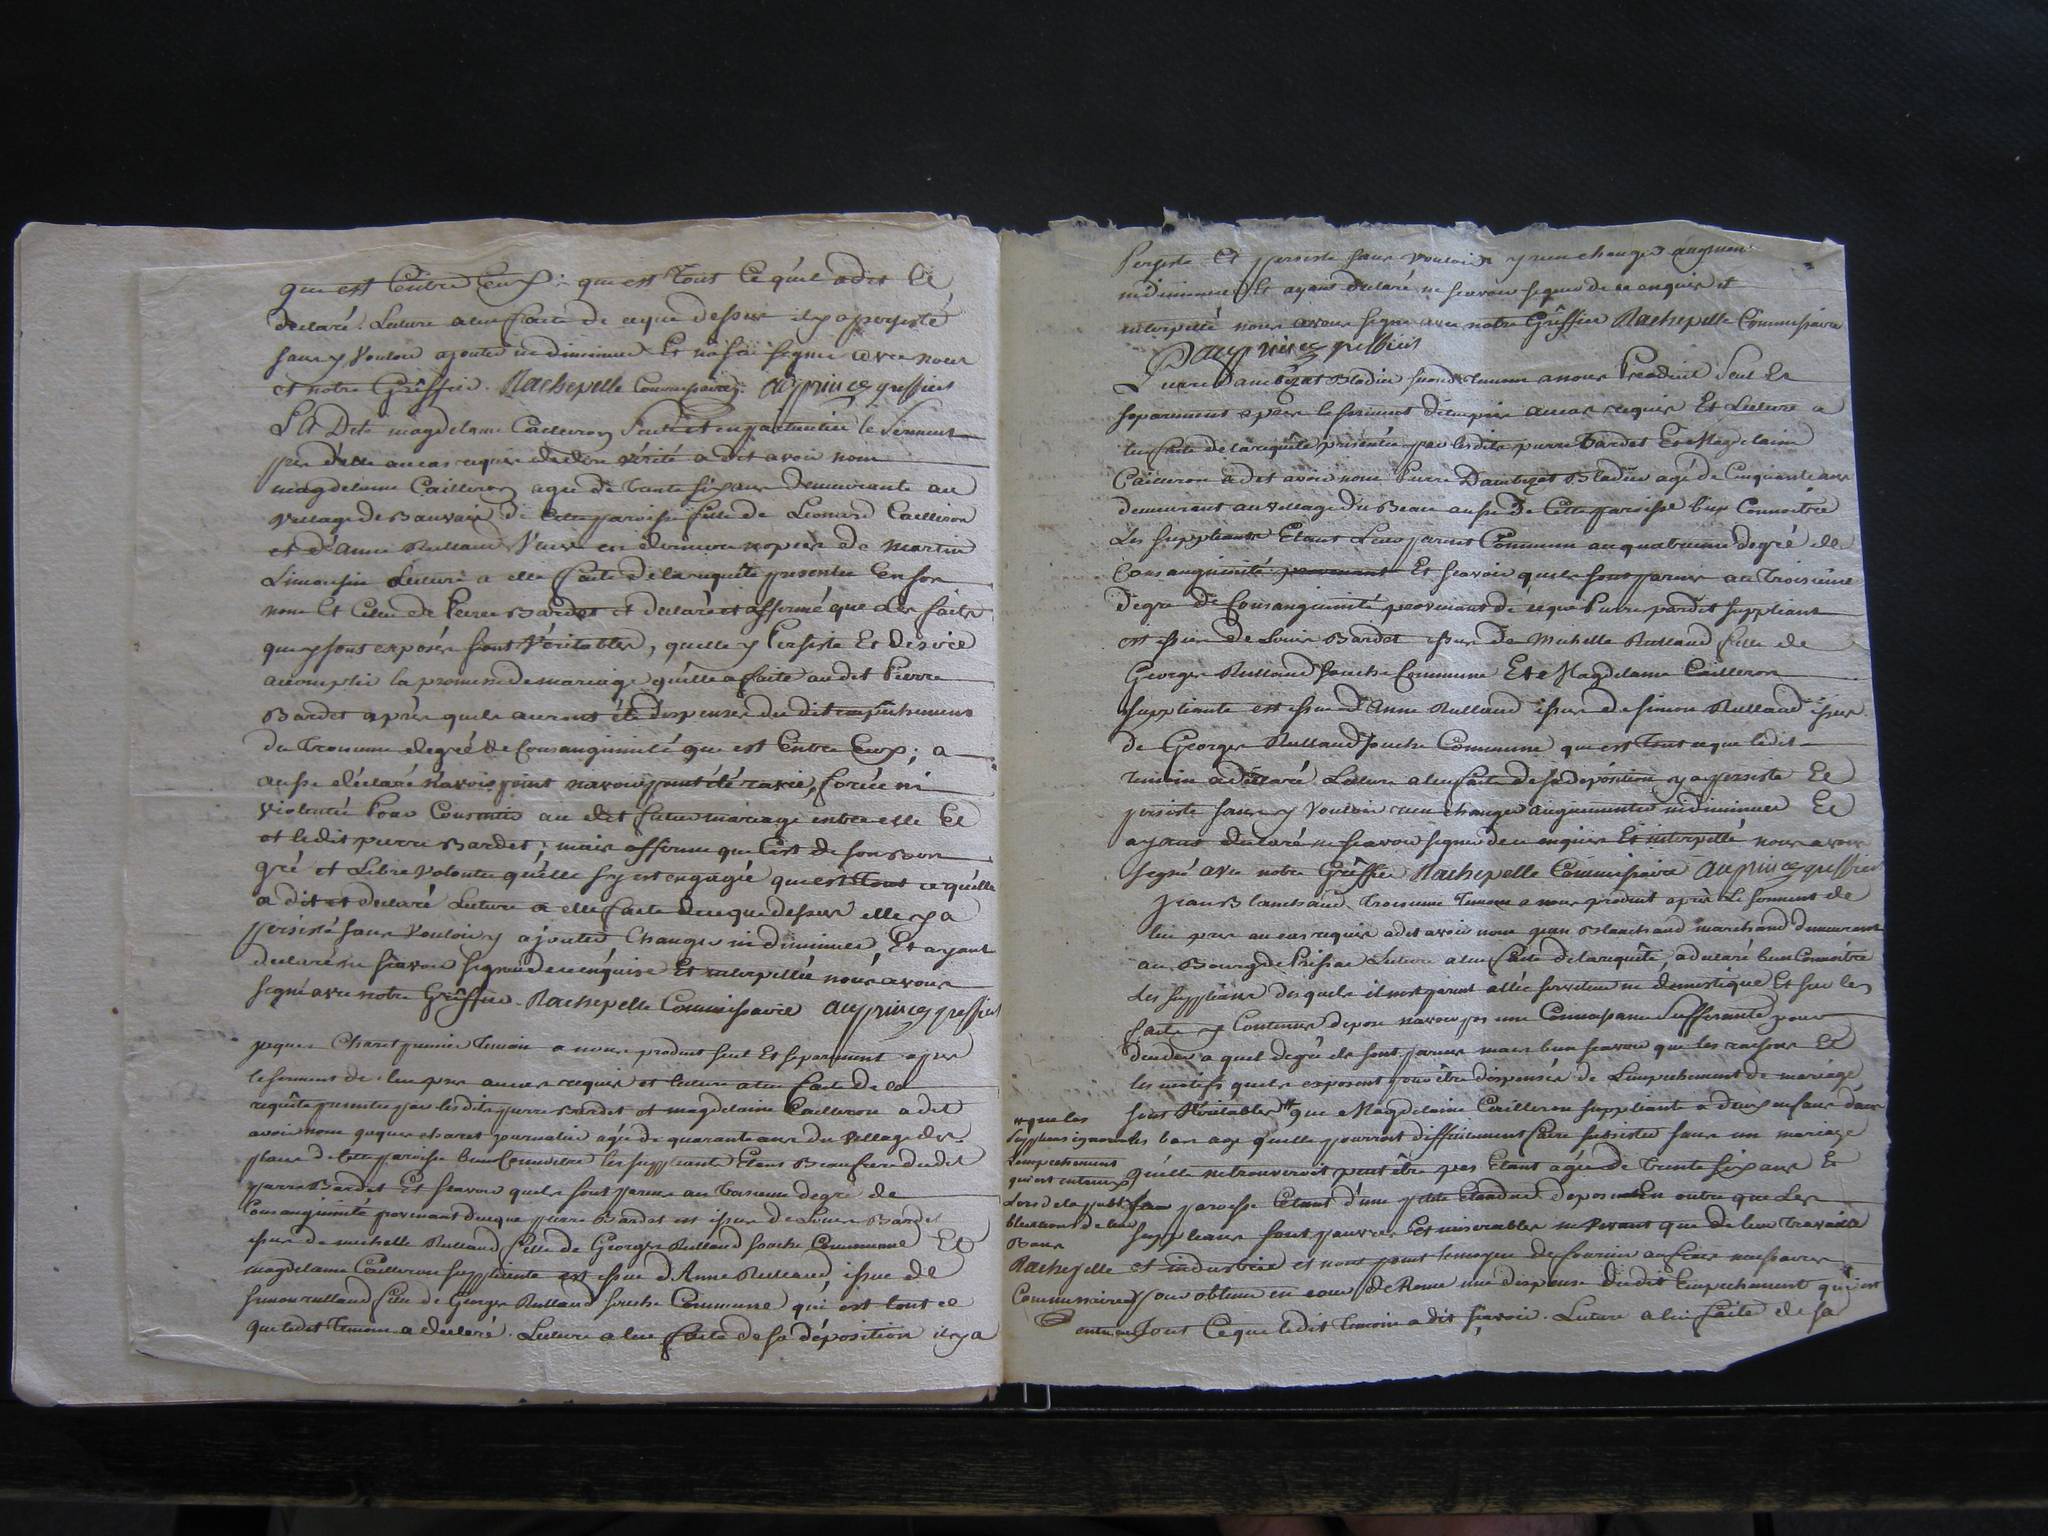 que est Entre Eux; qui est tout ce qu'il a dit et
declaré. Lecture a lui faite de ce que dessus il y a persisté
sans y vouloir ajouter ni diminuer Et n'a signé avec nous
et notre Greffier. Rachepelle Commissaire. auprince greffier
La Dite magdelaine Cailleron le serment
pris d'elle au cas requis de dire vérité a dit avoir nom
magdelaine Cailleron agée de trente six ans demeurante au
village de Bauvais de cette paroisse fille de Leonard Cailleron
et d'Anne Rullaud Veuve en dernieres nopces de martin
Limousin Lecture a elle faite de la requête presentée en son
nom Et celui de Pierre Bardet et declaré et affirmé que les faits
qui y sont exposés sont véritables, quelle y Persiste Et desire
accomplir la promesse de mariage qu'elle a faite au dit Pierre
Bardet après quils auront été dispensés du dit empêchement
du troisieme degré de Consanguinité que est Entre Eux; a
aussi déclaré n'avoir point n'avoir point été ravie, forcée ni
violentée Pour Consentir au dit futur mariage entre elle Et
et ledit pierre Bardet; mais affirme que c'est de son Bon
gré et Libre volonté qu'elle s'y est engagée qui est tout ce qu'elle
a dit et declaré Lecture a elle faite de ce que dessus elle y a
persisté sans Vouloir y ajouter Changer ni diminuer Et ayant
declaré ne sçavoir signer de ce enquise Et interpellée nous avons
signé avec notre Greffier. Rachepelle Commissaire auprince greffier
jaques Charet premier temoin a nous produit seul Et separement après
le serment de lui pris au cas requis et lecture a lui faite de la
requête presentée par les dits pierre Bardet et magdelaine Cailleron a dit
avoir nom jaques charet journalier agé de quarante ans du village de
plans de cette paroisse bien Connoitre les suppliants Etans Beaufrere du dit
pierre Bardet Et sçavoir quils sont parens au troisieme degré de
Consanguinité provenant de ce que pierre Bardet est issu de Louis Bardet
issu de michelle Rullaud fille de Georges Rullaud souche Commune Et
magdelaine Cailleron suppliante est issue d'Anne Rullaud, issue de
simon rullaud fils de Georges Rullaud souche Commune qui est tout ce
que ledit temoin a declaré. Lecture a lui faite de sa déposition il y a
Persisté Et persiste sans vouloir y rien changer augmen
ni diminuer Et ayant declaré ne sçavoir signer de ce enquis et
interpellé nous avons signé avec notre Greffier Rachepelle Commissaire
auprince greffier
Pierre Second temoin a nous Produit Seul Et
separement après le serment de lui pris au cas requis Et Lecture a
lui faite de la requête presentée par les dits pierre Bardet Et Magdelaine
Cailleron a dit avoir nom Pierre agé de Cinquante ans
demeurant au village du Beau aussi de Cette paroisse bien Connoitre
Les suppliants Etant Leur parent Commun au quatrieme degré de
Consanguinité provenant Et sçavoir quils sont parens au troisieme
degré de Consanguinité provenant de ce que Pierre pardet suppliant
est issu de Louis Bardet issu de Michelle Rullaud fille de
Georges Rullaud souche Commune Et Magdelaine Cailleron
suppliante est issue d'Anne Rullaud issue de simon Rullaud issu
de Georges Rullaud souche Commune qui est tout ce que ledit
temoin a déclaré Lecture a lui faite de sa déposition y a persisté Et
persiste sans y Vouloir rien changer augmenter ni diminuer Et
ayant declaré ne sçavoir signer de ce enquis Et interpellé nous avons
signé avec notre Greffier Rachepelle Commissaire auprince greffier
jean Blanchaud Troisieme Temoin a nous produit après Le serment de
lui pris au cas requis a dit avoir nom jean Blanchaud marchand demeurant
au Bourg de Lecture a lui faite de la requête, a declaré bien Connoitre
Les suppliants desquels il n'est parent allié serviteur ni domestique Et sur les
faits y Contenus depose n'avoir pas une Connoissance suffisante pour
decider a quel degré ils sont parens mais bien sçavoir que les raisons Et
les motifs quils exposent pour être dispensés de L'empechement de mariage
sont véritables que Magdelaine Cailleron suppliante a deux enfans dans
les bas age quelle pourroit difficilement faire subsister sans un mariage
qu'elle ne trouveroit peut être pas Etant agée de trente six ans Et
sa paroisse Etant d'une petite Etendue depose en outre que Les
suppliants sont pauvres Et miserables ne vivant que de leur travail
et industrie et n'ont point le moyen de fournir aux frais necessaires
pour obtenir en cour de Rome une dispense du dit Empechement qui est
entr'eux Tout Ce que ledit temoin a dit sçavoir. Lecture a lui faite de sa
et que les
supplians ignoroient
L'empechement
qui est entr'eux
Lors de la publi
blications de leur
Bans
Rachepelle
Commissaire